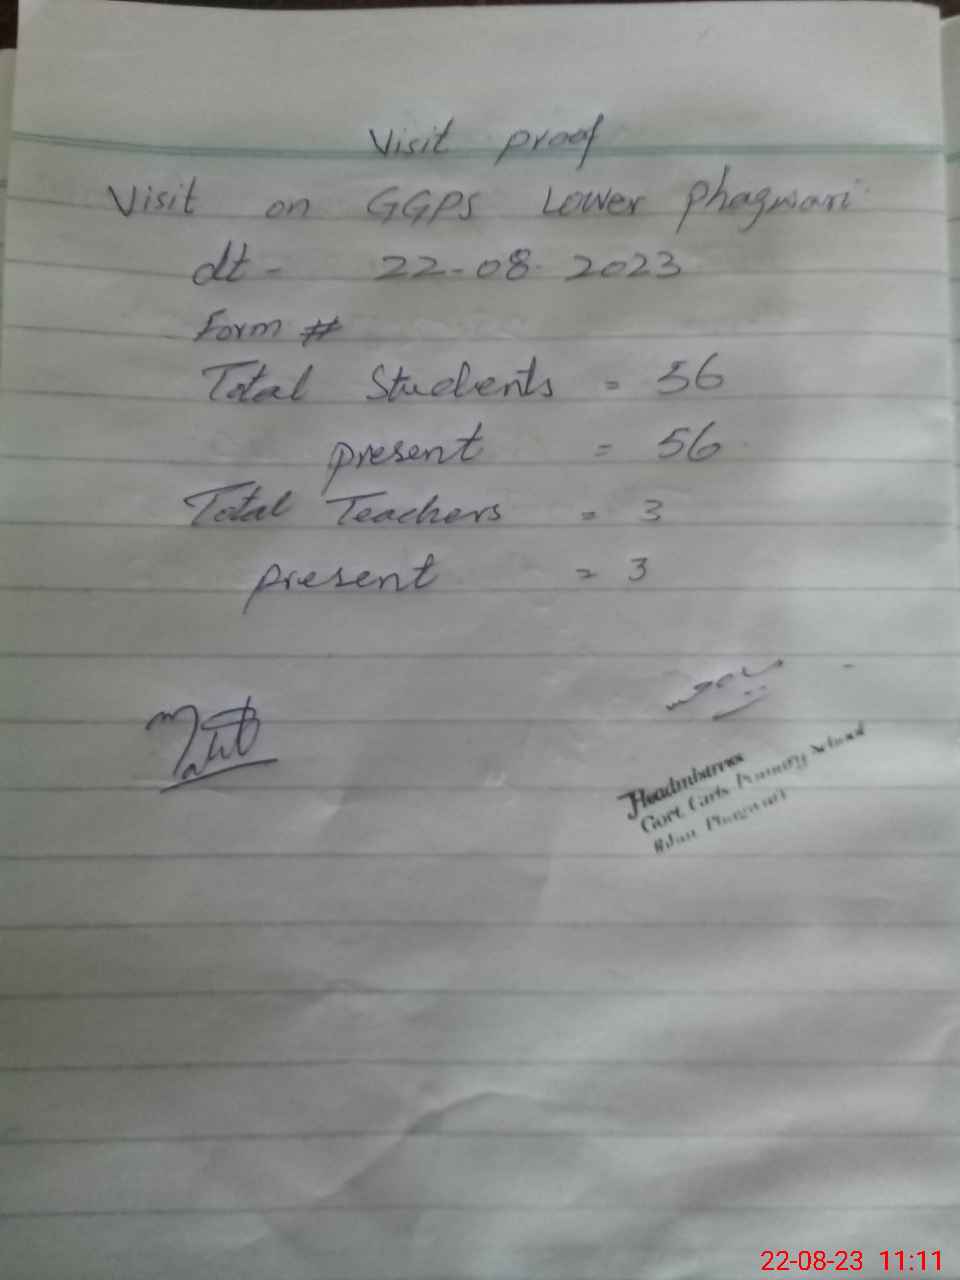 Visit proof
Visit on GGPS Lower Phagwari
dt - 22-08-2023
Form #
Total Students = 56
present = 56
Total Teachers = 3
present = 3
Headmistress
Govt. Girls Primary School
Phagwari
22-08-23 11:11